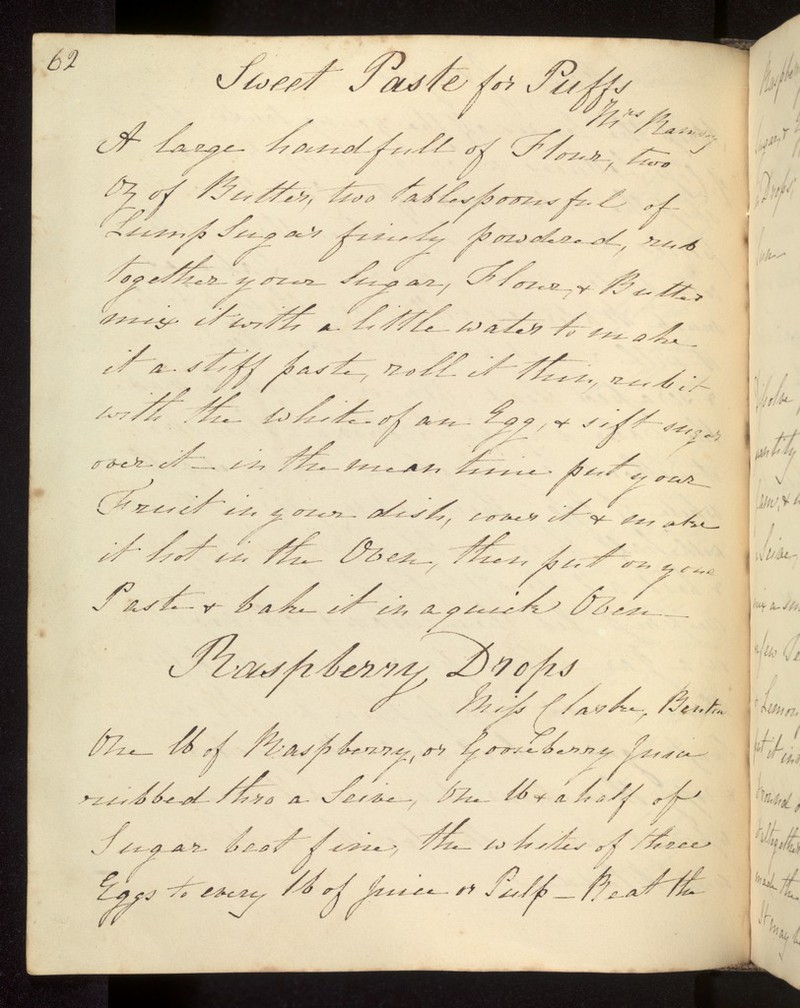 62
Sweet Paste for Puffs
Mrs Ramsay
A large handfull of Flour, two
Oz of Butter, two tablespoonsful of
Lump Sugar finely powdered, rub
together your Sugar, Flour, & Butter
mix it with a little water to make
it a stiff paste, roll it thin, rub it
with the white of an Egg, & sift sugar
over it – in the mean time put your
Fruit in your dish, cover it & make
it hot in the Oven, then put on your
Paste & bake it in a quick Oven –
Raspberry Drops
Miss Clarke, Benton
One lb of Raspberry, or Gooseberry Juice
rubbed thro a Seive, One lb & a half of
Sugar beat fine, the whites of three
Eggs to every lb of Juice or Pulp – Beat the